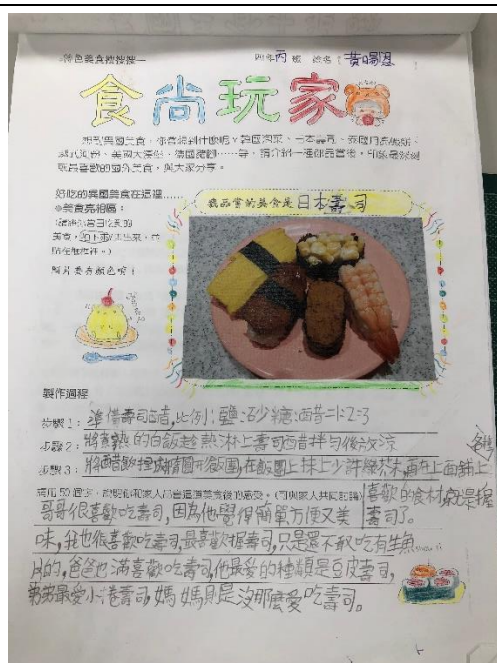 特色美食搜搜搜一 四年丙班 姓名:黃
食尚玩家
想到異國美食,你會想到什麼呢?韓國泡菜、日本壽司、泰國月亮蝦餅、
越式河粉、美國大漢堡、德國豬腳……等,請介紹一種你品嘗過,印象最深刻
或最喜歡的國外美食,與大家分享。
好吃的異國美食在這裡……
我品嘗的美食是日本壽司
※美食亮相囉:
(請將你當日吃的
美食,拍下來 畫出來,並
貼在框框裡。)
照片要有顏色唷!
製作過程
步驟1:準備壽司醋,比例:鹽:砂糖:醋=1:2:3
步驟2:將煮熟的白飯趁熱淋上壽司醋拌勻後放涼
步驟3:將醋飯捏成橢圓形飯團,在飯團上抹上少許綠芥末,再在上面鋪上
喜歡的食材,就是握
壽司了。
請用50個字,說明你和家人品嘗這道美食後的感受。(可與家人共同討論)
哥哥很喜歡吃壽司,因為他覺得簡單方便又美
味,我也很喜歡吃壽司,最喜歡握壽司,只是還不敢吃有生魚
片的,爸爸也滿喜歡吃壽司,他最愛的種類是豆皮壽司,
弟弟最愛小捲壽司,媽媽則是沒那麼愛吃壽司。